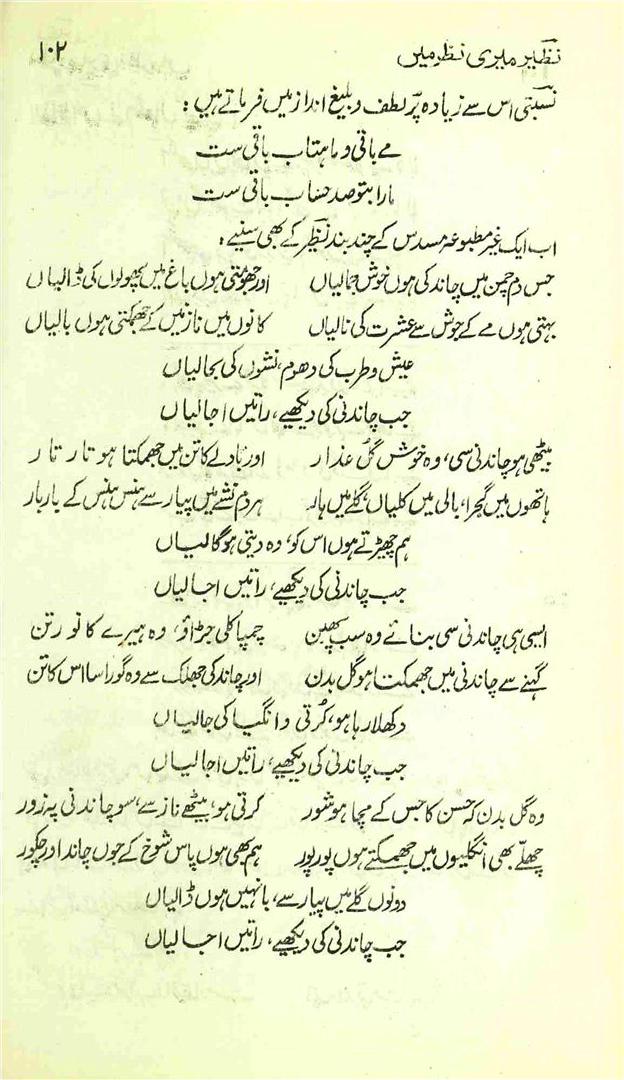 نظیر میری نظر میں ۱۰۲
نسبتی اس سے زیادہ پر لطف و بلیغ انداز میں فرماتے ہیں :
مے باقی و ماہتاب باقی ست
مارا بتو صد حساب باقی ست
اب ایک غیر مطبوعہ مسدس کے چند بند نظیر کے بھی سنیے :
جس دم چمن میں چاند کی ہوں خوش جمالیاں اور جھومتی ہوں باغ میں پھولوں کی ڈالیاں
بہتی ہوں مے کے جوش سے عشرت کی نالیاں کانوں میں نازنیں کے جھمکتی ہوں بالیاں
عیش و طرب کی دھوم، نشوں کی بحالیاں
جب چاندنی کی دیکھیے، راتیں اجالیاں
بیٹھی ہو چاندنی سی، وہ خوش گل عذار اور بادلے کا تن میں جھمکتا ہو تار تار
ہاتھوں میں گجرا، بالی میں کلیاں، گلے میں ہار ہر دم نشے میں پیار سے ہنس ہنس کے بار بار
ہم چھیڑتے ہوں اس کو، وہ دیتی ہو گالیاں
جب چاندنی کی دیکھیے، راتیں اجالیاں
ایسی ہی چاندنی سی بنائے وہ سب پھبن چمپا کلی جڑاؤ، وہ ہیرے کا نو رتن
گہنے سے چاندنی میں جھمکتا ہو گل بدن اور چاند کی جھلک سے وہ گورا سا اس کا تن
دکھلا رہا ہو، کُرتی و انگیا کی جالیاں
جب چاندنی کی دیکھیے، راتیں اجالیاں
وہ گل بدن کہ حسن کا جس کے مچا ہو شور کرتی ہو، بیٹھے ناز سے، سو چاندنی پہ زور
چھلّے بھی انگلیوں میں جھمکتے ہوں پور پور ہم بھی ہوں پاس شوخ کے جوں چاند اور چکور
دونوں گلے میں پیار سے، بانہیں ہوں ڈالیاں
جب چاندنی کی دیکھیے، راتیں اجالیاں